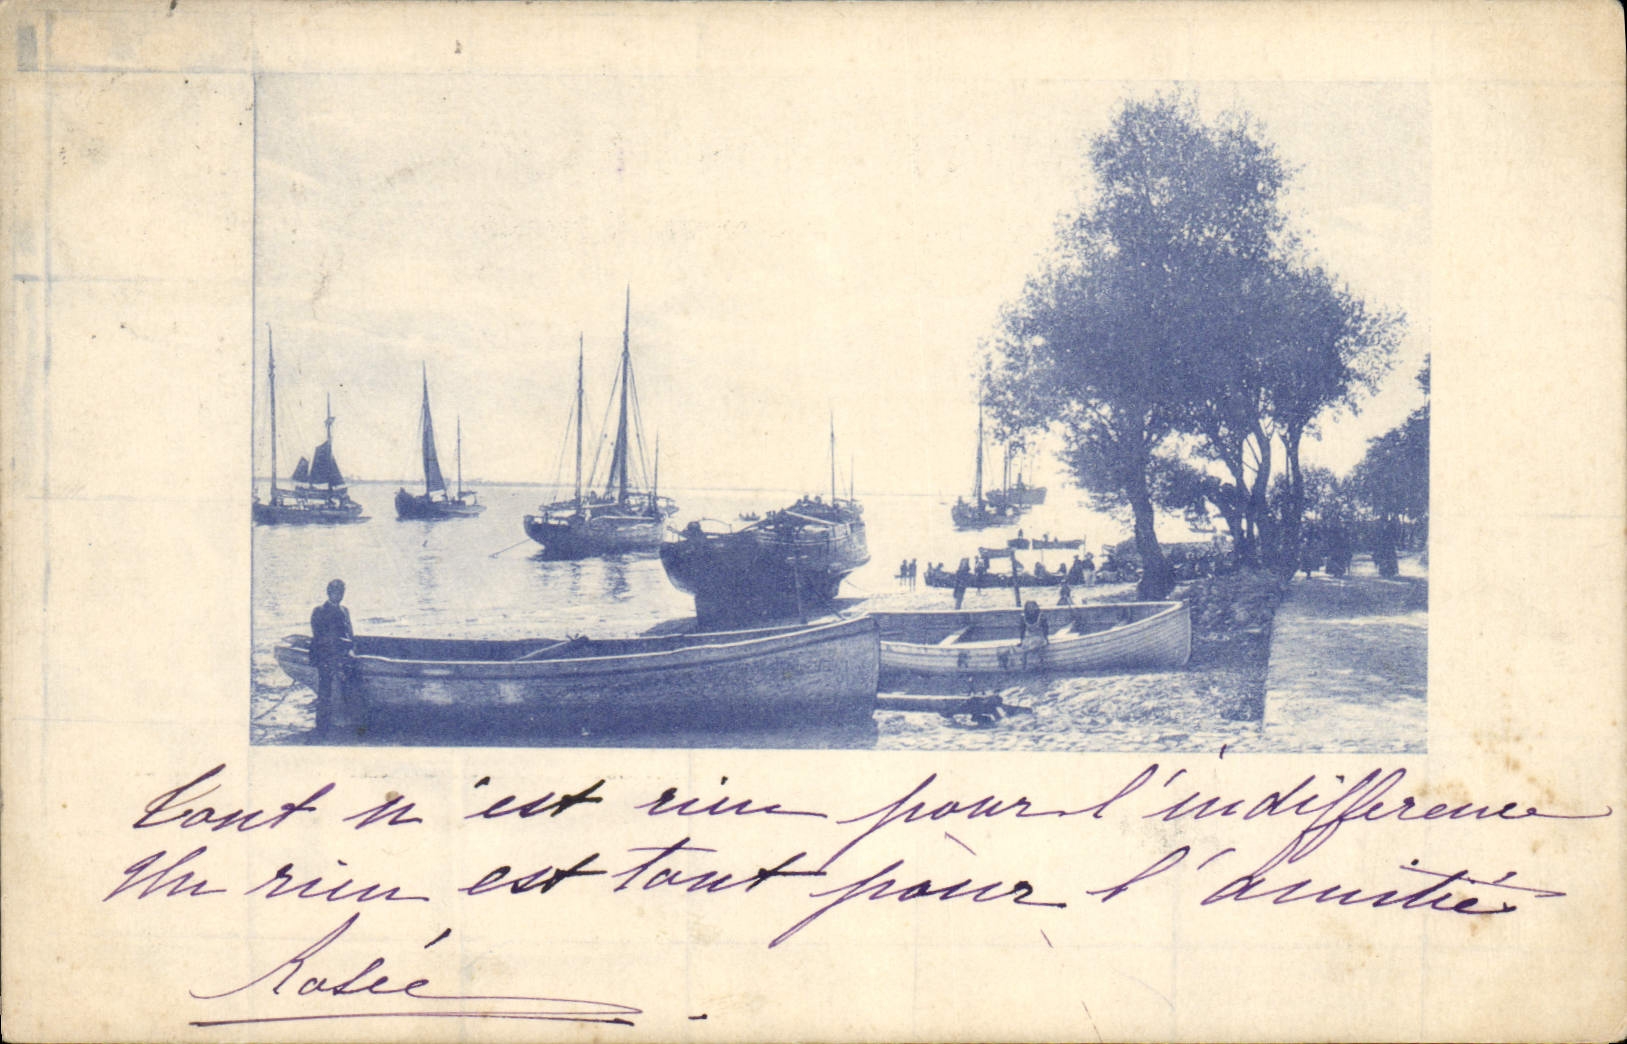 Tout n'est rien pour l'indifference
Un rien est tout pour l'amitié
Rosée